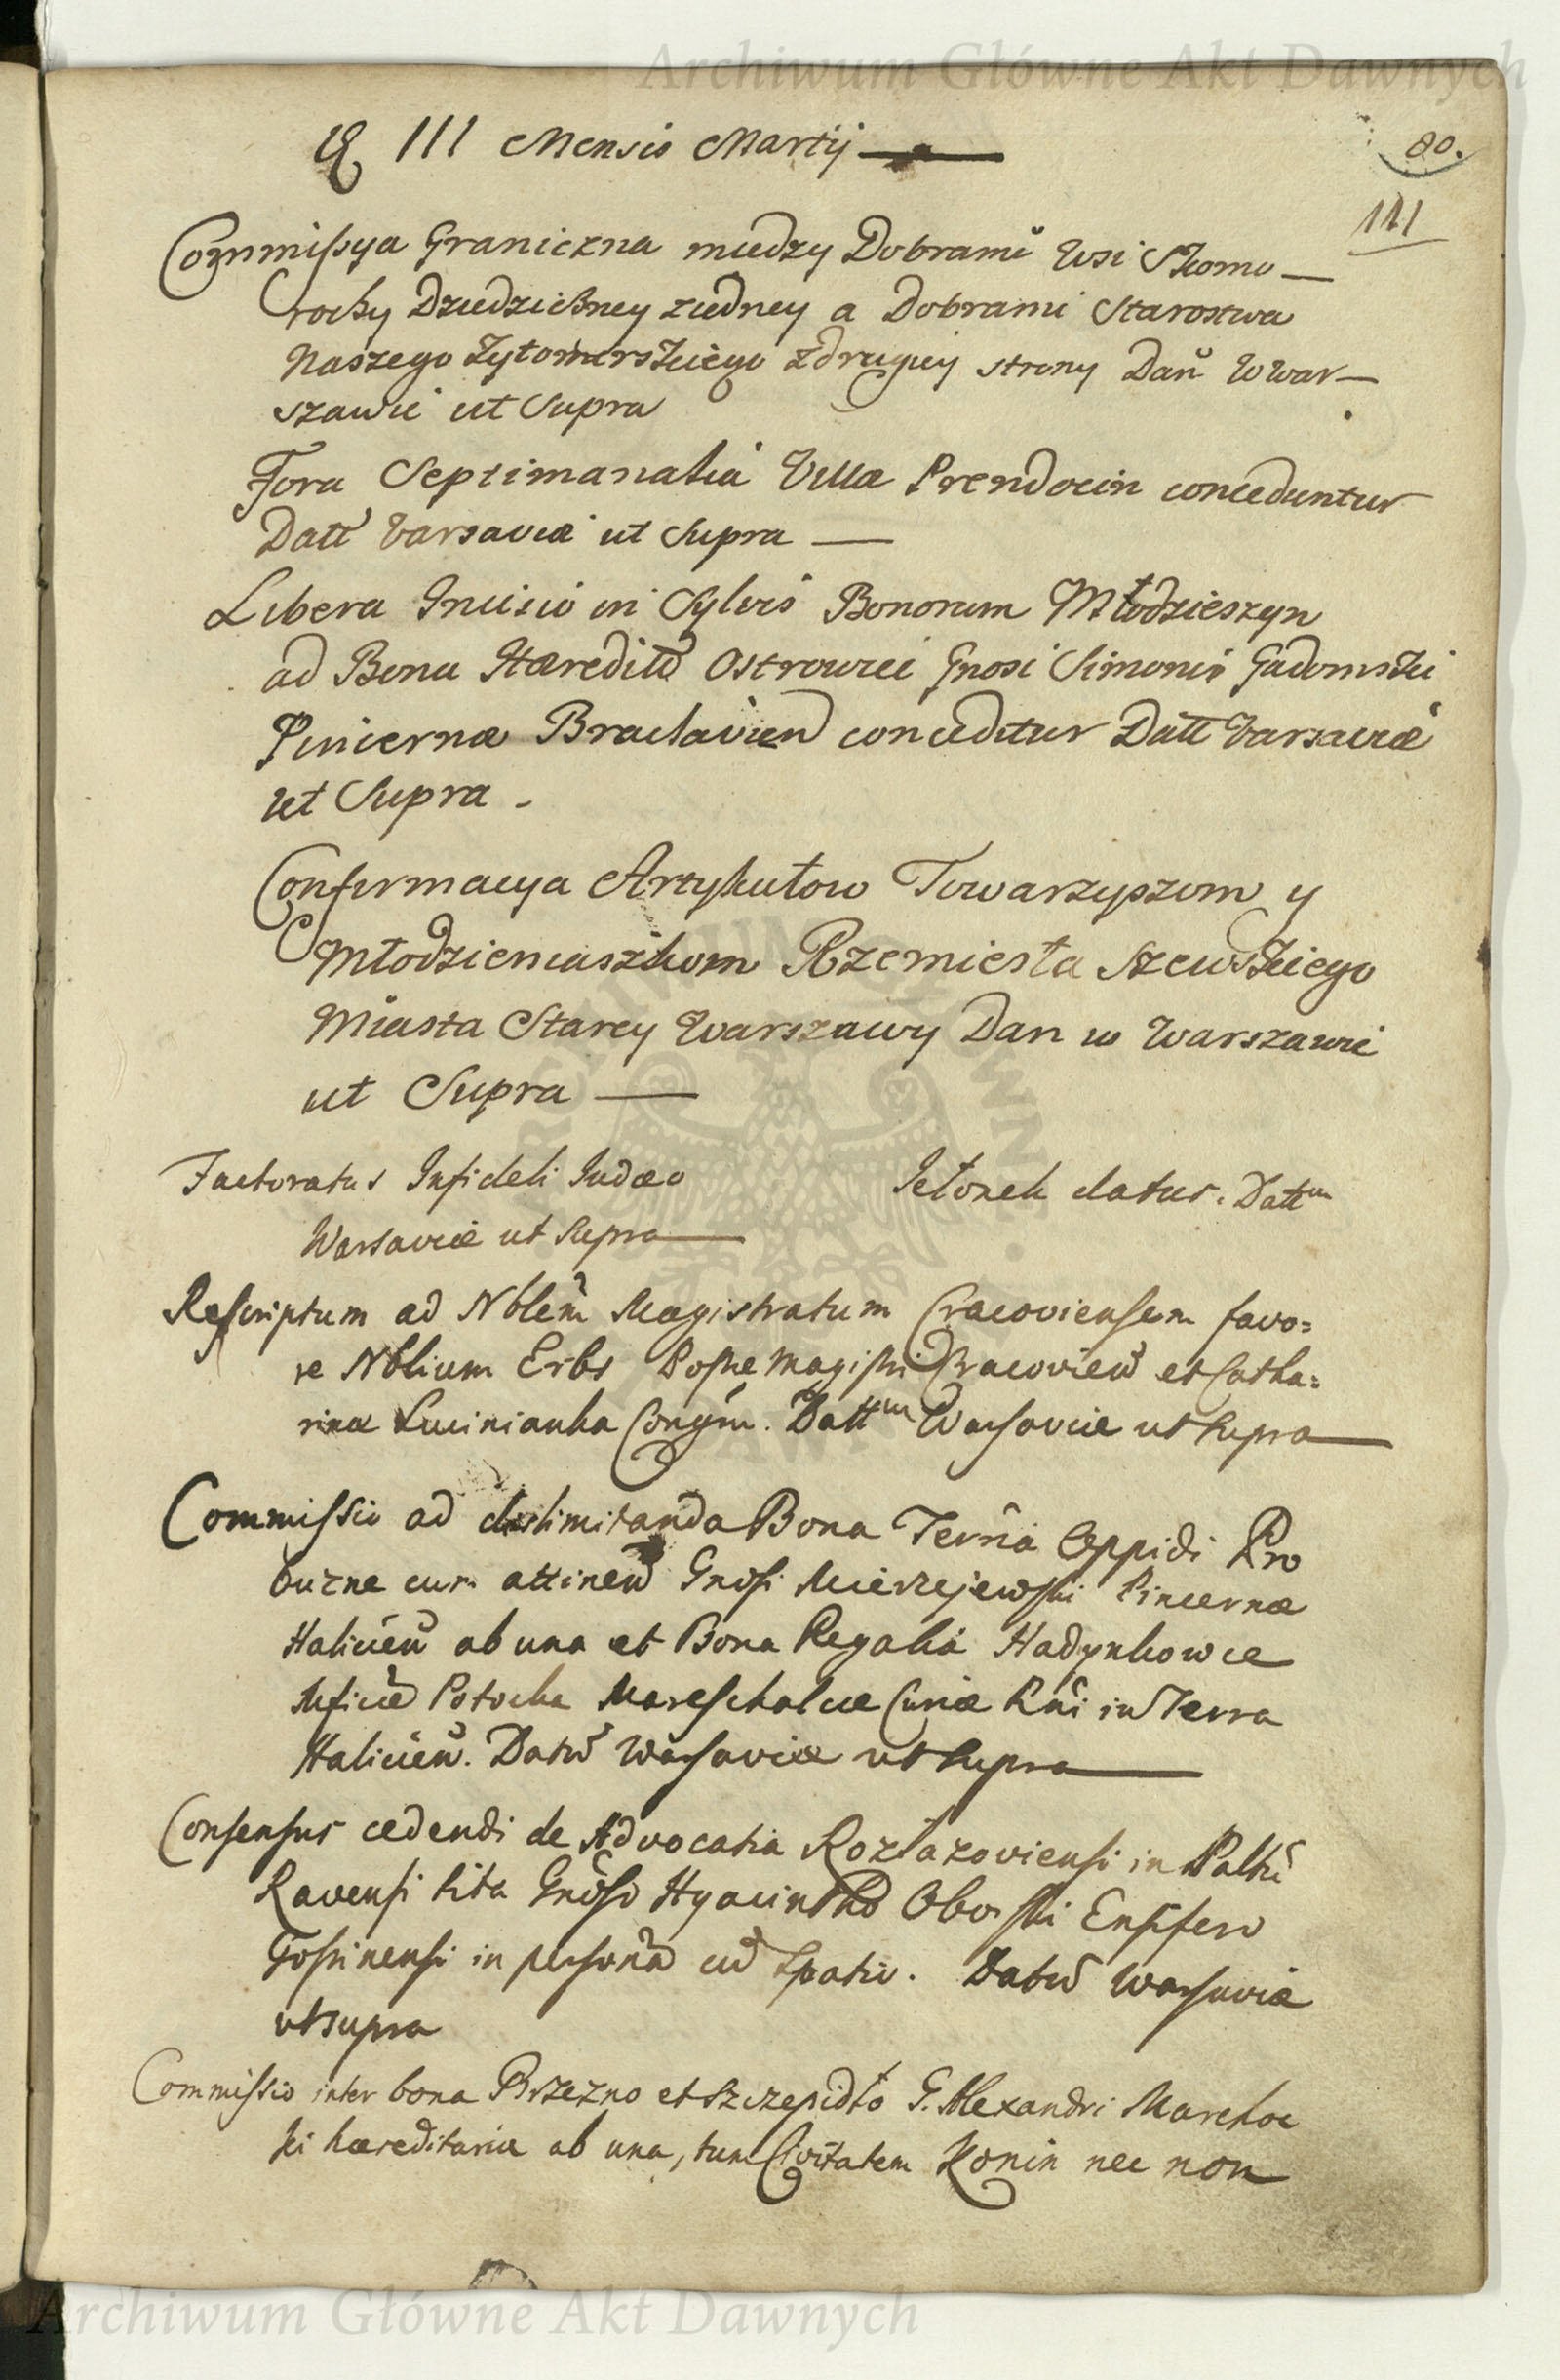 Archiwum Główne Akt Dawnych
III Mensis Martij
80.
111
Commissya Graniczna miedzy Dobrami Wsi Skomo
rochy Dziedziczney z iedney a Dobrami Starostwa
Naszego Zytomirskiego z drugiey strony Dan w War
szawie ut Supra
Fora Septimanalia Villæ Prendocin conceduntur
Datt Varsaviæ ut Supra
Libera Incisio in Sylvis Bonorum Młodzieszyn
ad Bona Hæredit Ostrowiec Gnosi Simonis Gadomski
Pincernæ Braclavien conceditur Datt Varsaviæ
ut Supra
Confirmacya Artykułow Towarzyszom y
Młodzieniaszkom Rzemiesła Szewskiego
Miasta Starey Warszawy Dan w Warszawie
ut Supra
Factoratus Infideli Judæo Ictonek datur. Dattm
Warsaviæ ut supra
Rescriptum ad Nblem Magistratum Cracoviensem favo=
re Nblium Erbs Postae Magistri Cracovien et Catha=
rinæ Lucinianka Congm. Dattum Warsaviæ ut supra
Commissio ad dislimitanda Bona Terria Oppidi Pro
buzne cum attinen Gnosi Mierzejewski Pincernæ
Halicien ab una et Bona Regalia Hadynkowce
Mficæ Potocka Mareschalcæ Curiæ Rni in Terra
Halicien. Datum Warsaviæ ut supra
Consensus cedendi de Advocatia Rozłazoviensi in Palttu
Ravensi sita Gnoso Hyacintho Oborski Ensifero
Gostinensi in personam cum spatio. Datum Warsaviæ
ut supra
Commissio inter bona Brzezno et Szczepidło G. Alexandri Marchoc
ki hæreditaria ab una, tum Civitatem Konin nec non
Archiwum Główne Akt Dawnych